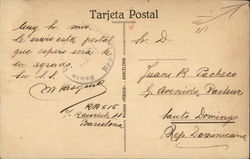 Tarjeta Postal
Muy Sr. mio:
Le envio esta postal
que espero sera de
su agrado.
Su S.S.
M Vasquez
RA 616
Barcelona
Sr. D.
Juan R Pacheco
G. Avenida Pasteur
Santo Domingo
Rep. Dominicana